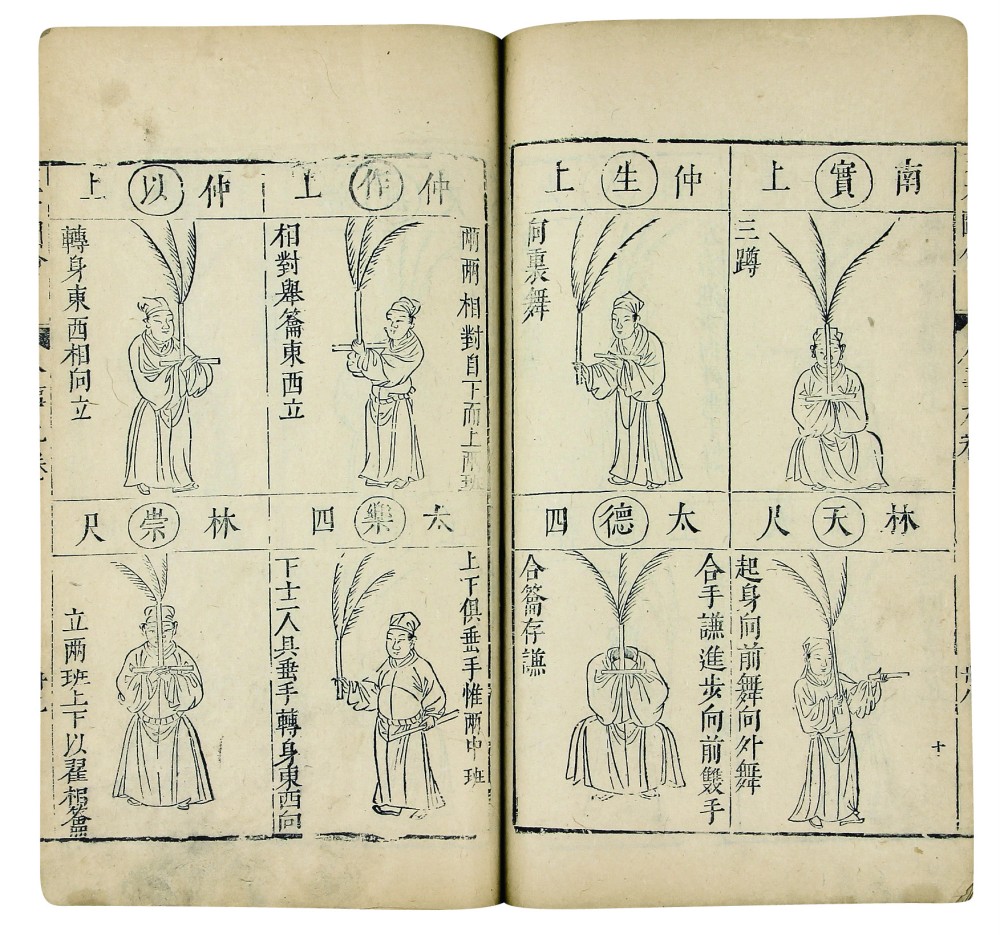 南實上
三蹲
仲生上
向裏舞
林天尺
起身向前舞向外舞
十
太德四
合手謙進步向前雙手
合籥存謙
仲作上
兩兩相對自下而上兩班
相對舉籥東西立
仲以上
轉身東西相向立
太樂四
上下俱垂手惟兩中班
下十二人具垂手轉身東西向
林崇尺
立兩班上下以翟相籥